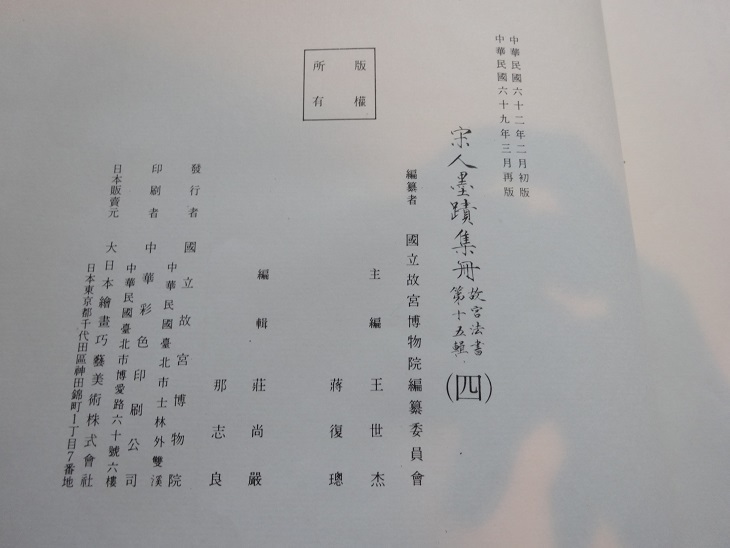 中華民國六十二年二月初版
中華民國六十九年三月再版
宋人墨蹟集册 故宮法書第十五輯 (四)
編纂者 國立故宮博物院編纂委員會
主編 王世杰
蔣復璁
編輯 莊尚嚴
那志良
發行者 國立故宮博物院
中華民國臺北市士林外雙溪
印刷者 中華彩色印刷公司
中華民國臺北市博愛路六十號六樓
日本販賣元 大日本繪畫巧藝美術株式會社
日本東京都千代田區神田錦町1丁目7番地
版權所有